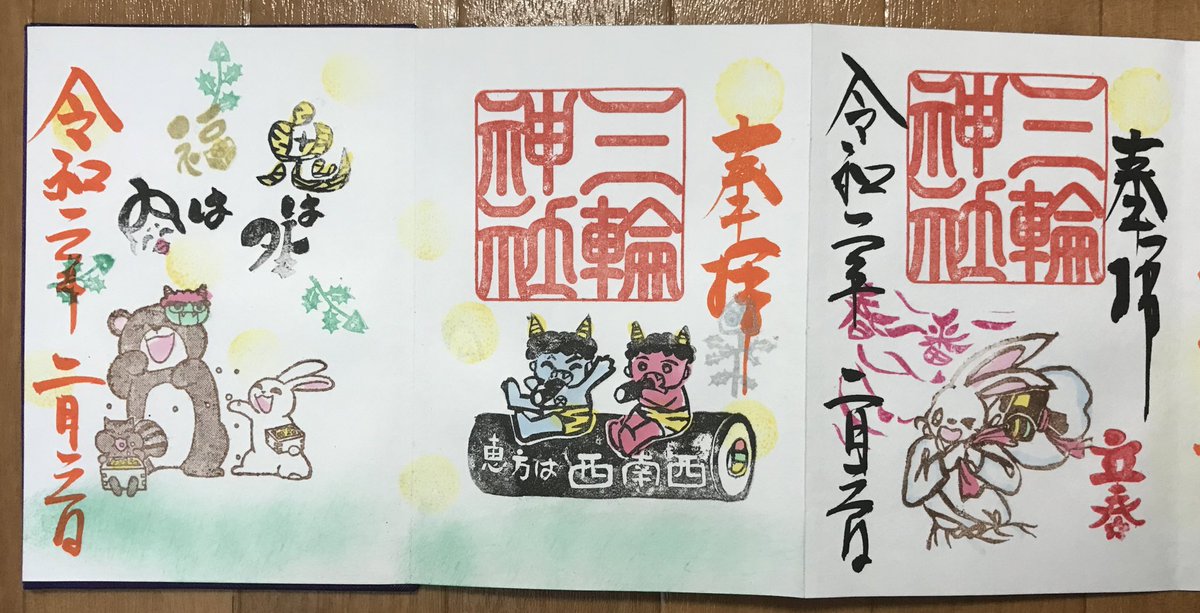 奉拝
三輪
神社
恵方は 西南西
鬼は外
福は内
令和二年 二月二日
奉拝
立春
三輪
神社
令和二年 二月二日